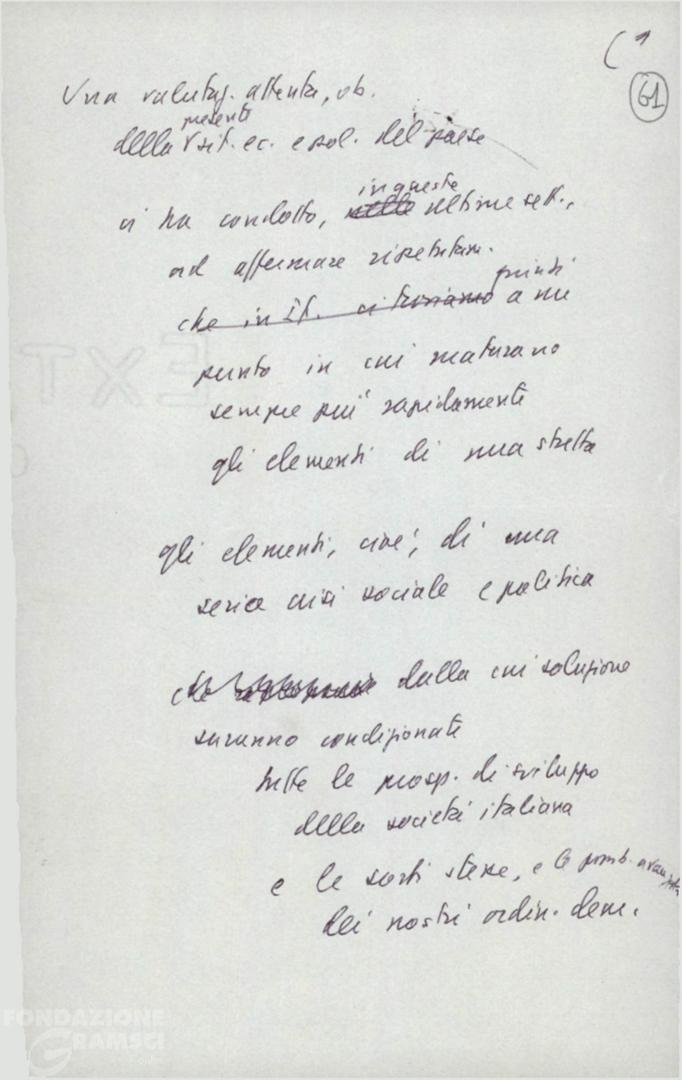 ( 1
61
Una valutaz. attenta, ob.
presente
della sit. ec. e pol. del paese
in queste
ci ha condotto, nelle ultime sett.,
ad affermare ripetutam.
quindi
che in It. ci troviamo a un
punto in cui maturano
sempre più rapidamente
gli elementi di una stretta
gli elementi, cioè, di una
seria crisi sociale e politica
che dalla cui soluzione
saranno condizionate
tutte le prosp. di sviluppo
della società italiana
e le sorti stesse, e le
dei nostri ordin. dem.
EXT
FONDAZIONE
GRAMSCI